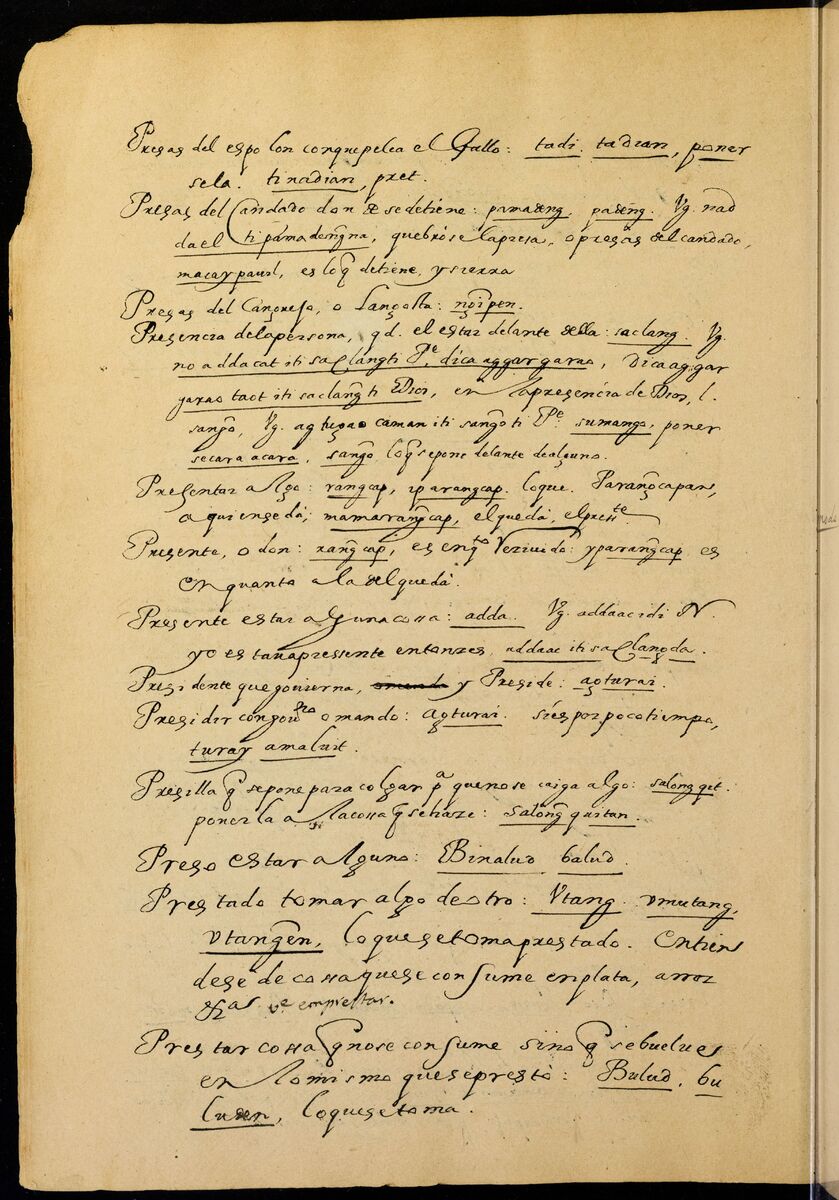 Presas del espolon conque pelea el Gallo: tadi. tadian, poner
sela. tinadian, pret.
Presas del Candado donde se detiene: pamadeng, padeng. Vg. nad
dael ti pamadengna, quebròse la presa, o presas del candado,
macaypaud, es lo q̃ detiene, y sierra
Presas del Cangrejo, o langosta: ngipen.
Presencia dela persona, qd. el estar delante della: saclang. Vg.
no addacat iti saclangti Pe. dica aggargarao, Dicaaggar
garao taot iti saclang ti Dios, en la presencia de Dios, l.
sango, Vg. agtugao caman iti sango ti Pe. sumango, poner
se cara a cara, sango lo q̃ se pone delante de alguno.
Presentar algo: rangcap, iparangcap. loque. Parangcapan,
a quien se dà; mamarangcap, el que dà, el presnte.
Presente, o don: rangcap, es enqto Recivido: yparangcap es
en quanto a la del que dà.
Presente estar alguna cossa: adda. Vg. addaac idi N.
yo estaua pressente entonzes, addaac iti saclangda.
Presidente que govierna, y Preside: agturai.
Presidir con govrno o mando: agturai. si es por poco tiempo,
turay amaluit.
Presilla q̃ se pone para colgar pa que no se caiga algo: salongqit.
ponerla a la cossa q̃ se haze: salongquitan.
Preso estar alguno: Binalud balud.
Prestado tomar algo de otro: Vtang. vmutang,
vtangen, lo que se toma prestado. Entien
dese de cossa que se consume en plata, arroz
&as ve emprestar.
Prestar cossa q̃ no se consume sino q̃ se buelue
en lo mismo que se prestò: Bulud, bu
luden, lo que se toma.